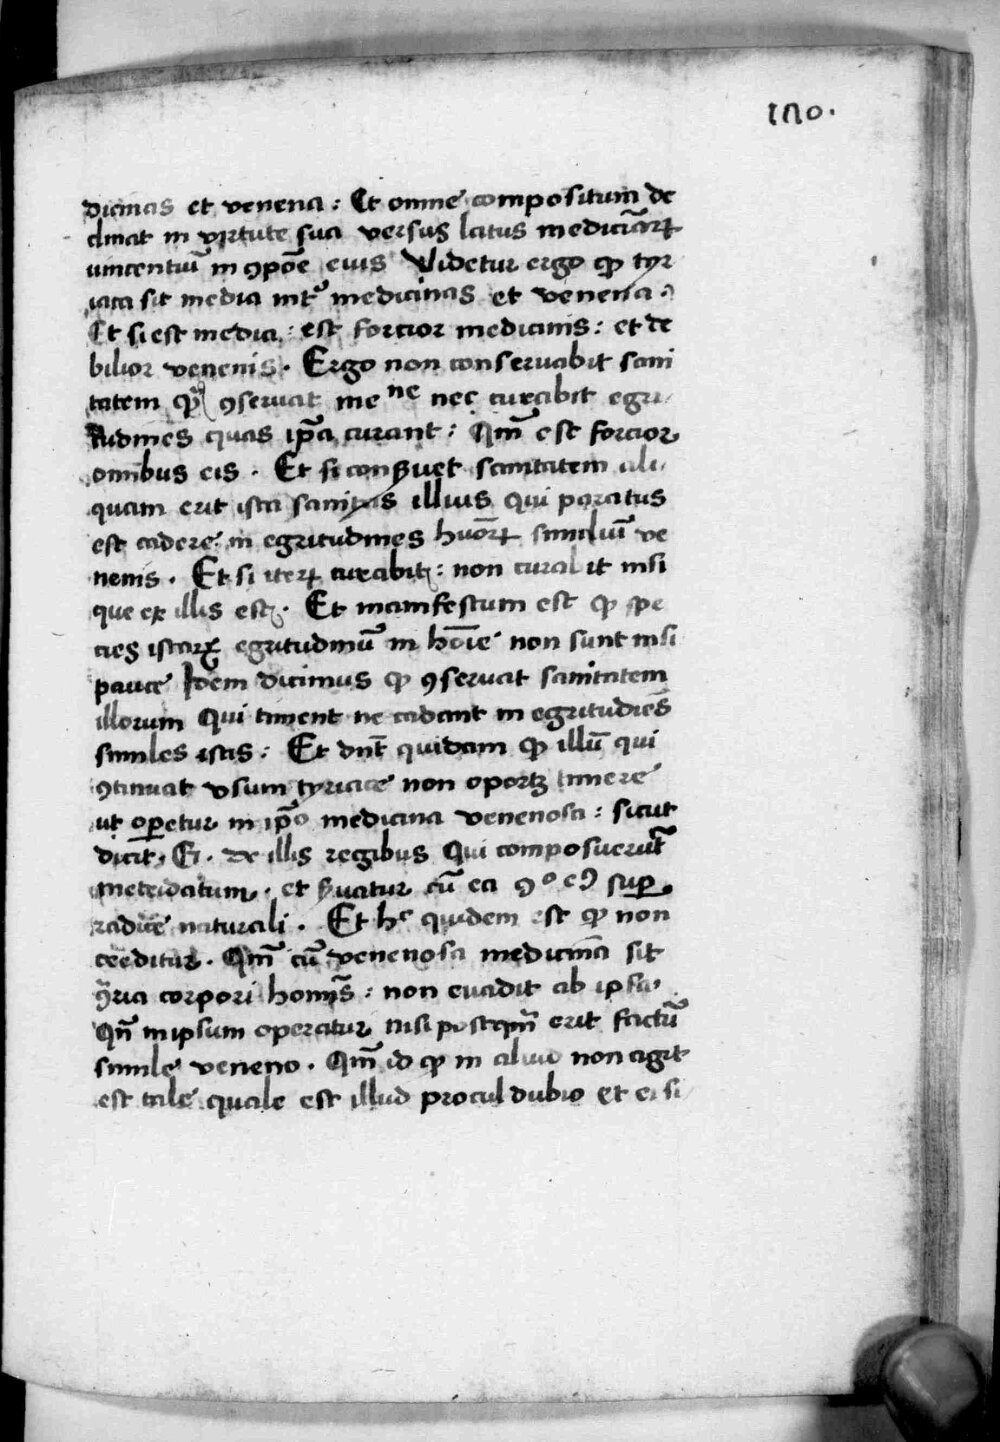 170.
dicinas et venena : Et omne compositum de
clinat in virtute sua versus latus mediciãrꝝ
vincentiũ in ꝯpõe eius Videtur ergo ꝙ tyr
iaca sit media intᷣ medicinas et venena .
Et si est media : est forcior medicinis : et de
bilior venenis . Ergo non conseruabit sani
tatem ꝯseruat me ne nec curabit egri
tudines quas ip̃a curant : Qm̃ est forcior
omnibus eis . Et si conẞuet sanitatem ali
quam erit ista sanitas illius qui paratus
est cadere in egritudines huõrꝝ similiũ ve
nenis . Et si iterꝝ curabit : non curabit nisi
que ex illis est . Et manifestum est ꝙ spe
cies istarꝝ egritudinũ in hõie non sunt nisi
pauce Idem dicimus ꝙ ꝯseruat sanitatem
illorum qui timent ne cadant in egritudiẽs
similes istis : Et dñt quidam ꝙ illũ qui
ꝯtinuat vsum tyriace non oportꝫ timere
ut oꝑetur in ip̃o medicina venenosa : sicut
dicit . G . de illis regibus qui composuerũt
metridatum . et ẞuatur cũ ea suꝑ
radice naturali . Et hᶜ quidem est ꝙ non
creditur . Qm̃ cũ venenosa medicina sit
ꝯ̃ria corpori homĩs : non euadit ab ipsa
Qñ in ipsum operatur nisi postqm̃ erit factũ
simile veneno . Qm̃ id ꝙ in aliud non agit
est tale quale est illud procul dubio et ei si